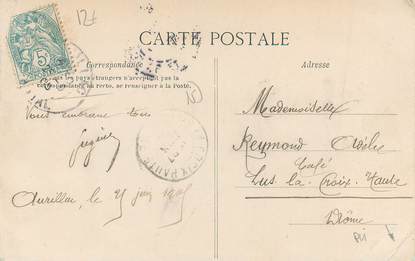 12f
5
CARTE POSTALE
Correspondance
Adresse
Tous les pays étrangers n'acceptent pas la
correspondance au recto, se renseigner à la Poste.
Vous embrasse tous
Mademoiselle
Reymond
Café
Lus-la-Croix-Haute
Drôme
Aurillac, le 25 juin